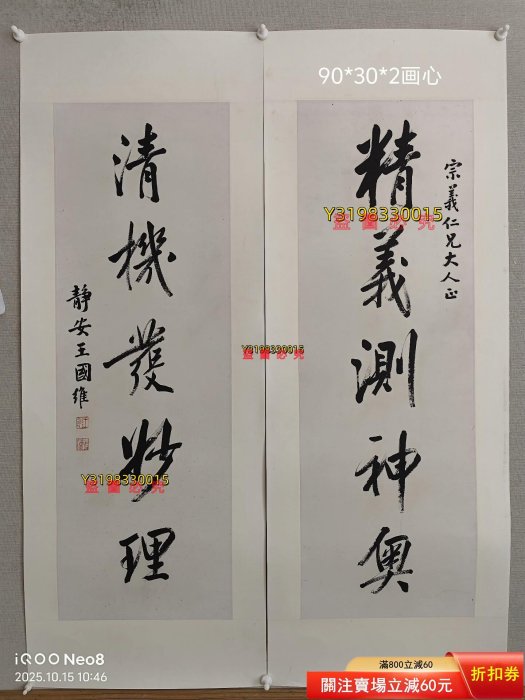 90*30*2画心
宗義仁兄大人正
精義測神奧
清機發妙理
靜安王國維
Y3198330015
盜圖必究
Y3198330015
盜圖必究
Y3198330015
盜圖必究
iQOO Neo8
2025.10.15 10:46
滿800立減60
關注賣場立減60元
折扣券